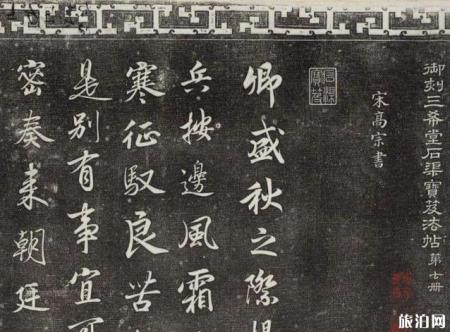 御刻三希堂石渠寶笈法帖第七册
宋高宗書
石渠寶笈
卿盛秋之際提
兵按邊風霜
寒征馭良苦
是別有事宜可
密奏来朝廷
旅泊网